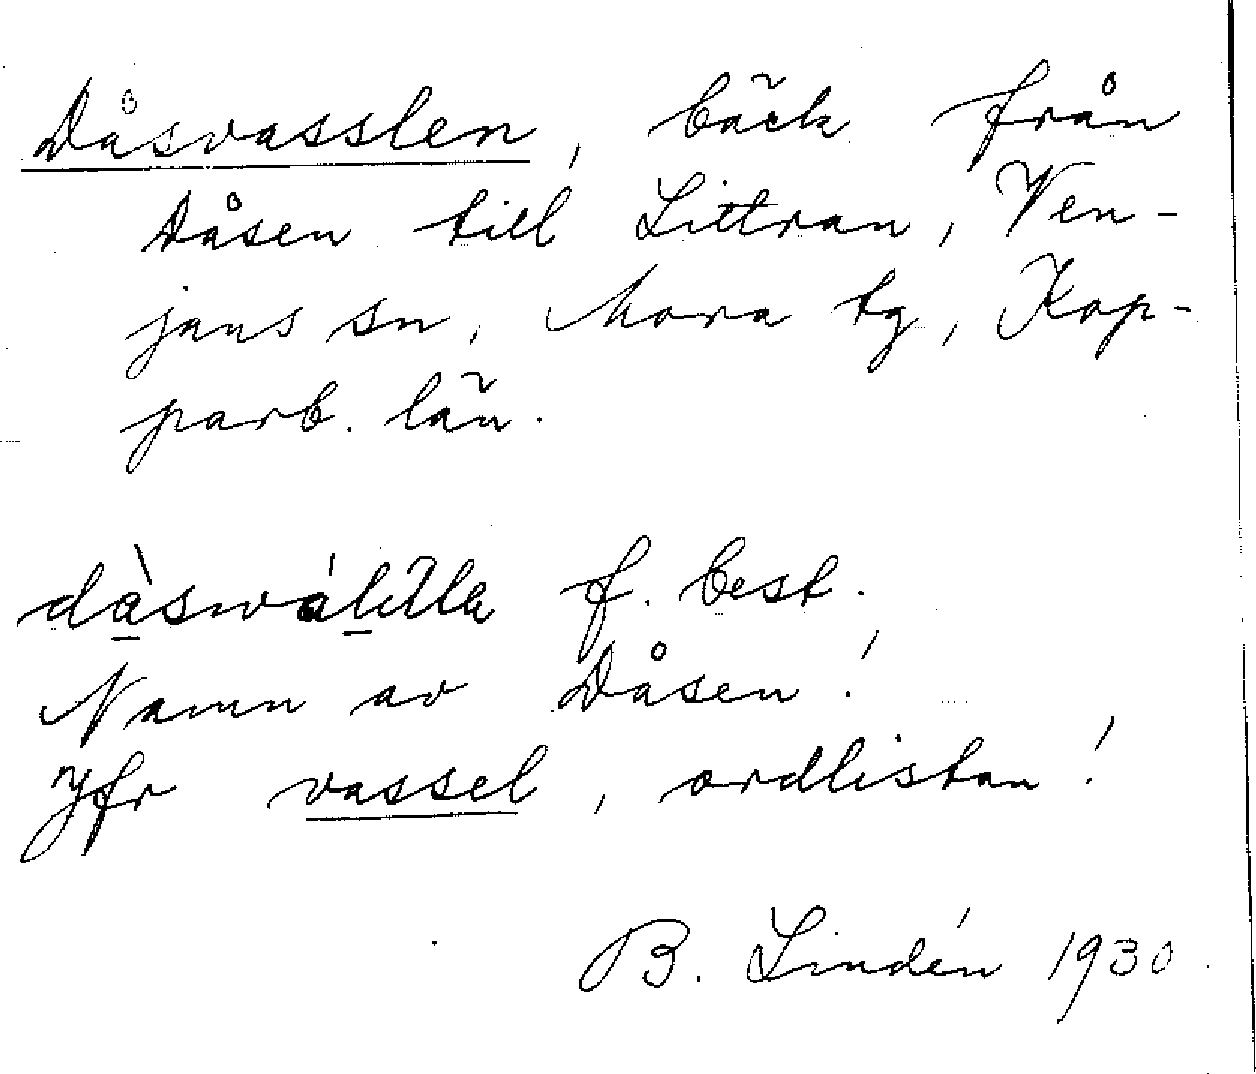 Dåsvasslen, bäck från
Dåsen till Littran, Ven-
jans sn, Mora tg, Kop-
parb. län.
f. best.
Namn av Dåsen!
Jfr vassel, ordlistan!
B. Lindén 1930.